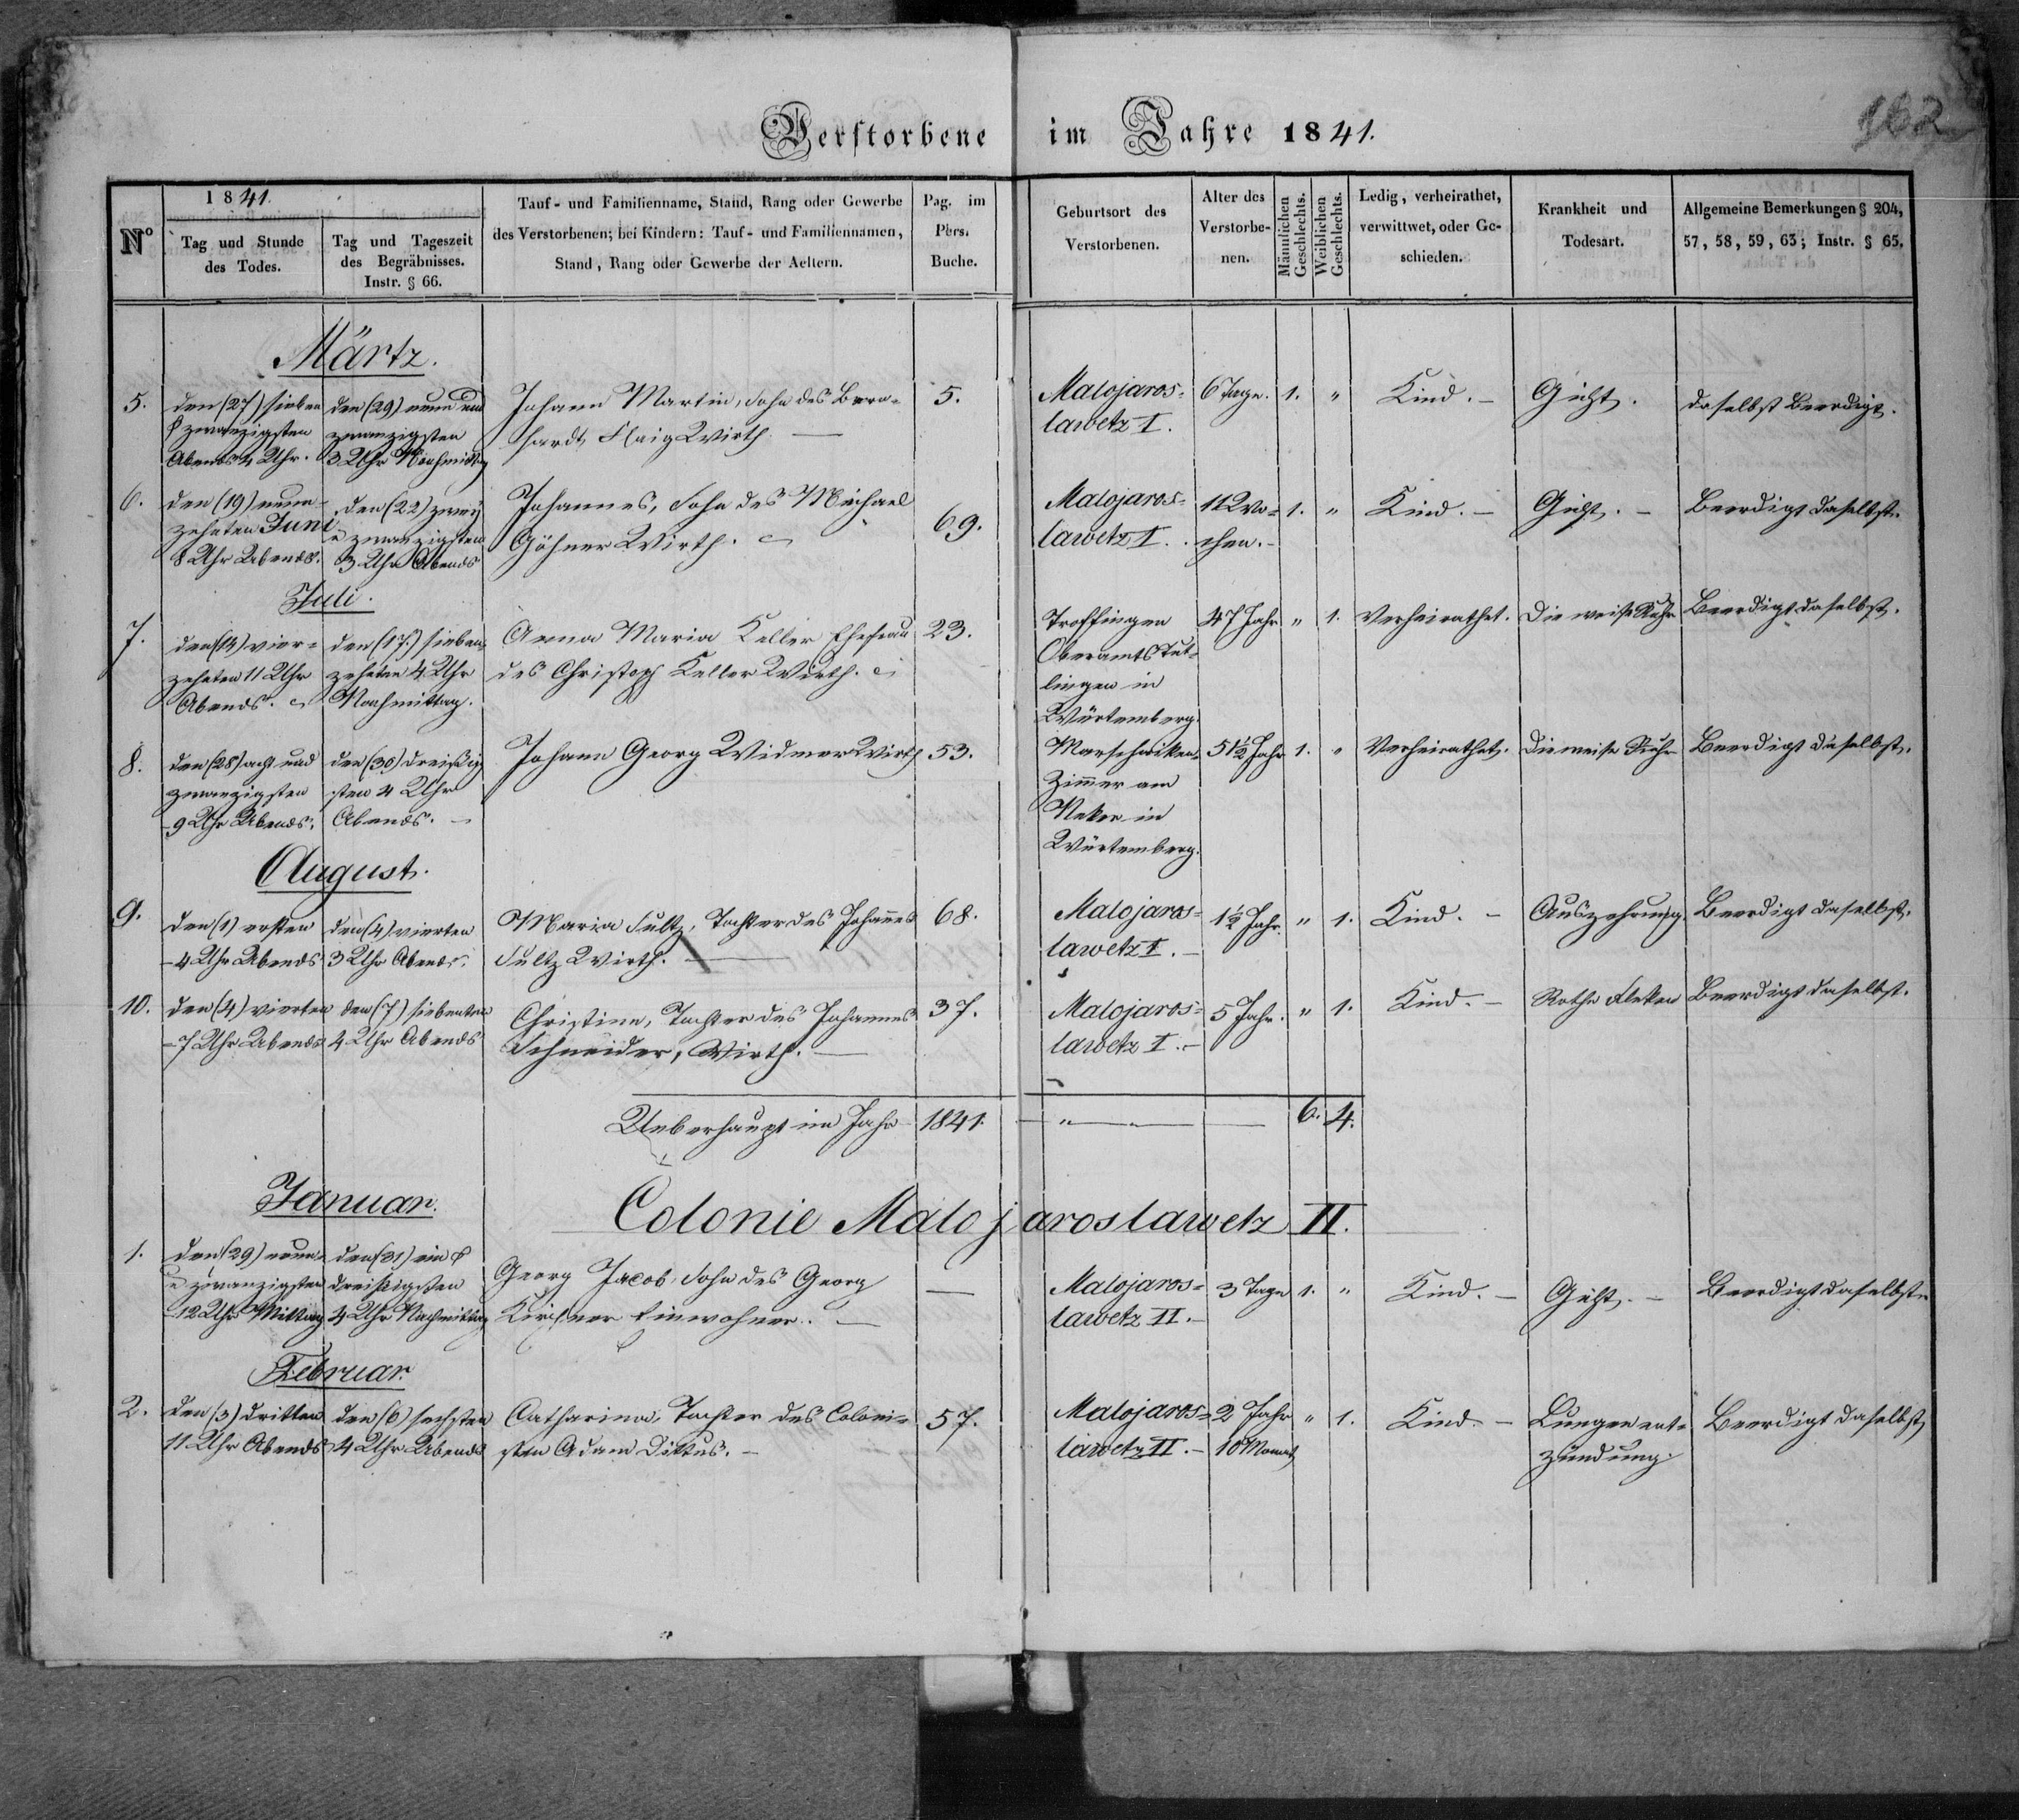 Verstorbene im Jahre 1841.
162
Nº
1841.
Tag und Stunde des Todes.
Tag und Tageszeit des Begräbnisses. Instr. § 66.
Tauf- und Familienname, Stand, Rang oder Gewerbe des Verstorbenen; bei Kindern: Tauf- und Familiennamen, Stand, Rang oder Gewerbe der Aeltern.
Pag. im Pers. Buche.
Geburtsort des Verstorbenen.
Alter des Verstorbe-nen.
Männlichen Geschlechts.
Weiblichen Geschlechts.
Ledig, verheirathet, verwittwet, oder Ge-schieden.
Krankheit und Todesart.
Allgemeine Bemerkungen § 204, 57, 58, 59, 63; Instr. § 65.
Märtz.
5. den (27) sieben den (29) neun und Johann Martin, Sohn des Bern- 5. Malojaros- 6 Tage. 1. " Kind. – Gicht. daselbst Beerdigt.
zwanzigsten zwanzigsten hardt Flaig Wirth. — lawetz I.
Abends 4 Uhr. 3 Uhr Nachmittag
6. den (19) neun- den (22) zwey Johannes, Sohn des Michael 69. Malojaros- 11 Wo- 1. " Kind. – Gicht. – Beerdigt daselbst.
zehnten Juni zwanzigsten Göhner Wirth. lawetz I. chen. –
8 Uhr Abends. 3 Uhr Abends
Juli.
7. den (14) vier- den (17.) sieben- Anna Maria Keller Ehefrau 23. Troffingen 47 Jahr " 1. Verheirathet. Die weiße Ruhr Beerdigt daselbst.
zehnten 11 Uhr zehnten 4 Uhr des Christoph Keller Wirth. Oberamts Tut-
Abends. Nachmittag. lingen in
Würtemberg.
8. den (28) acht und den (30) dreißig- Johann Georg Widmer Wirth 53. Marschalken- 51½ Jahr 1. " Verheirathet. Die weiße Ruhr Beerdigt daselbst.
zwanzigsten sten 4 Uhr Zimmer am
– 9 Uhr Abends. Abends. – Neker in
Würtemberg.
August.
9. den (1) ersten den (4) vierten Maria Sultz, Tochter des Johanes 68. Malojaros- 1½ Jahr. " 1. Kind. – Auszehrung. Beerdigt daselbst.
– 4 Uhr Abends 3 Uhr Abends. Sultz Wirth. — lawetz I. –
10. den (4) vierten den (7) siebenten Christine, Tochter des Johannes 37. Malojaros- 5 Jahr. " 1. Kind. – Rothe Fleken Beerdigt daselbst.
– 7 Uhr Abends 4 Uhr Abends Schneider, Wirth. — lawetz I. –
Ueberhaupt im Jahr 1841. — " — 6. 4.
Januar.
Colonie Malojaroslawetz II.
1. den (29) neun- den (31) ein Georg Jacob, Sohn des Georg — Malojaros- 3 Tage 1. " Kind. – Gicht. – Beerdigt daselbst.
zwanzigsten dreißigsten Kirchner Einwohner. — lawetz II. –
– 12 Uhr Mittag 4 Uhr Nachmittag
Februar.
2. den (3) dritten den (6) sechsten Catharina, Tochter des Coloni- 57. Malojaros- 2 Jahr " 1. Kind. – Lungenent- Beerdigt daselbst
11 Uhr Abends 4 Uhr Abends sten Adam Dittus. – lawetz II. – 10 Monat zündung.